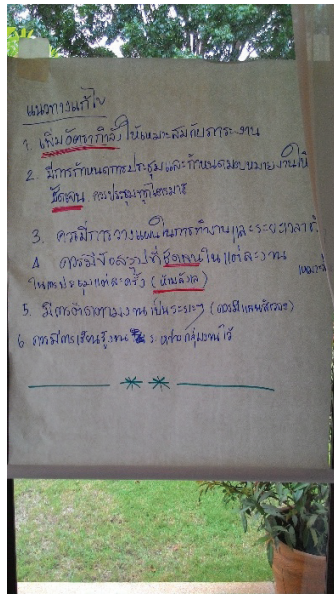 แนวทางแก้ไข
1. เพิ่มอัตรากำลังให้เหมาะสมกับภาระงาน
2. มีการกำหนดการประชุมและกำหนดมอบหมายงานให้
ชัดเจน ควรประชุมทุกไตรมาส
3. ควรมีการวางแผนในการทำงานและระยะเวลาที่
เหมาะสม
4 ควรมีข้อสรุปที่ชัดเจนในแต่ละงาน
ในการประชุมแต่ละครั้ง (ห้ามลังเล)
5. มีการติดตามงานเป็นระยะๆ (ควรมี
6 ควรมีการเรียนรู้งาน ระหว่างกลุ่มงานไว้